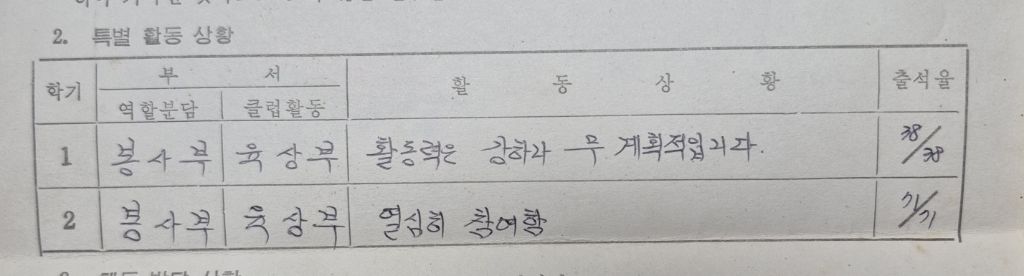 2. 특별 활동 상황
학기 부 서 활 동 상 황 출석율
역할분담 클럽활동
1 봉사부 육상부 활동력은 강하나 무계획적입니다. 38/38
2 봉사부 육상부 열심히 참여함 31/31